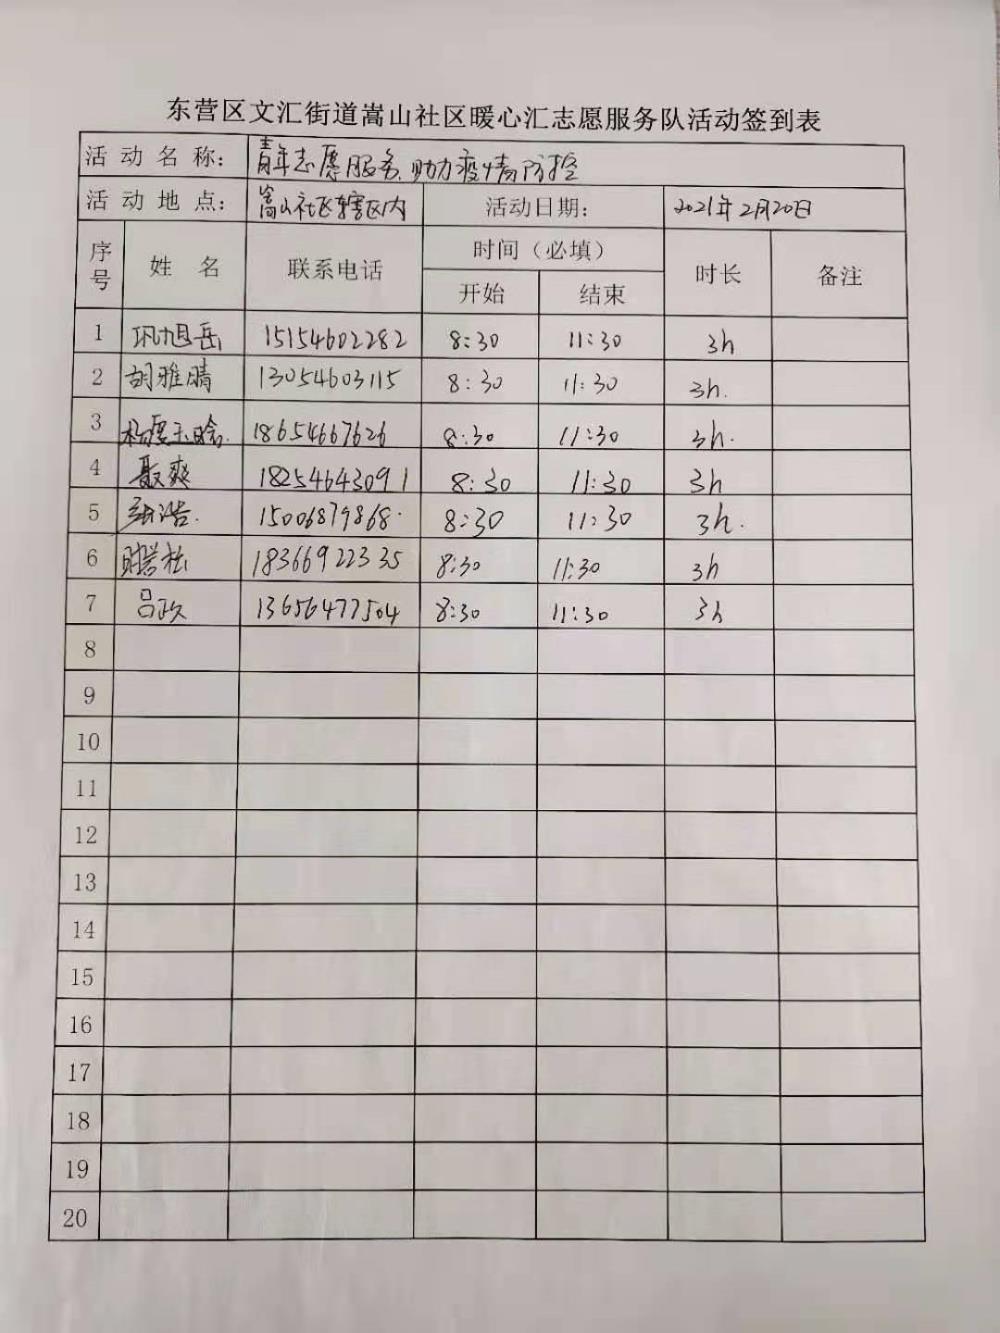 东营区文汇街道嵩山社区暖心汇志愿服务队活动签到表
活动名称： 青年志愿服务、助力疫情防控
活动地点： 嵩山社区辖区内 活动日期： 2021年2月20日
序号 姓名 联系电话 时间（必填） 时长 备注
开始 结束
1 巩旭岳 15154602282 8:30 11:30 3h
2 胡雅晴 13054603115 8:30 11:30 3h.
3 18654667626 8:30 11:30 3h.
4 聂爽 18254643091 8:30 11:30 3h
5 15006879868. 8:30 11:30 3h.
6 18366922335 8:30 11:30 3h
7 吕政 13656477504 8:30 11:30 3h
8
9
10
11
12
13
14
15
16
17
18
19
20